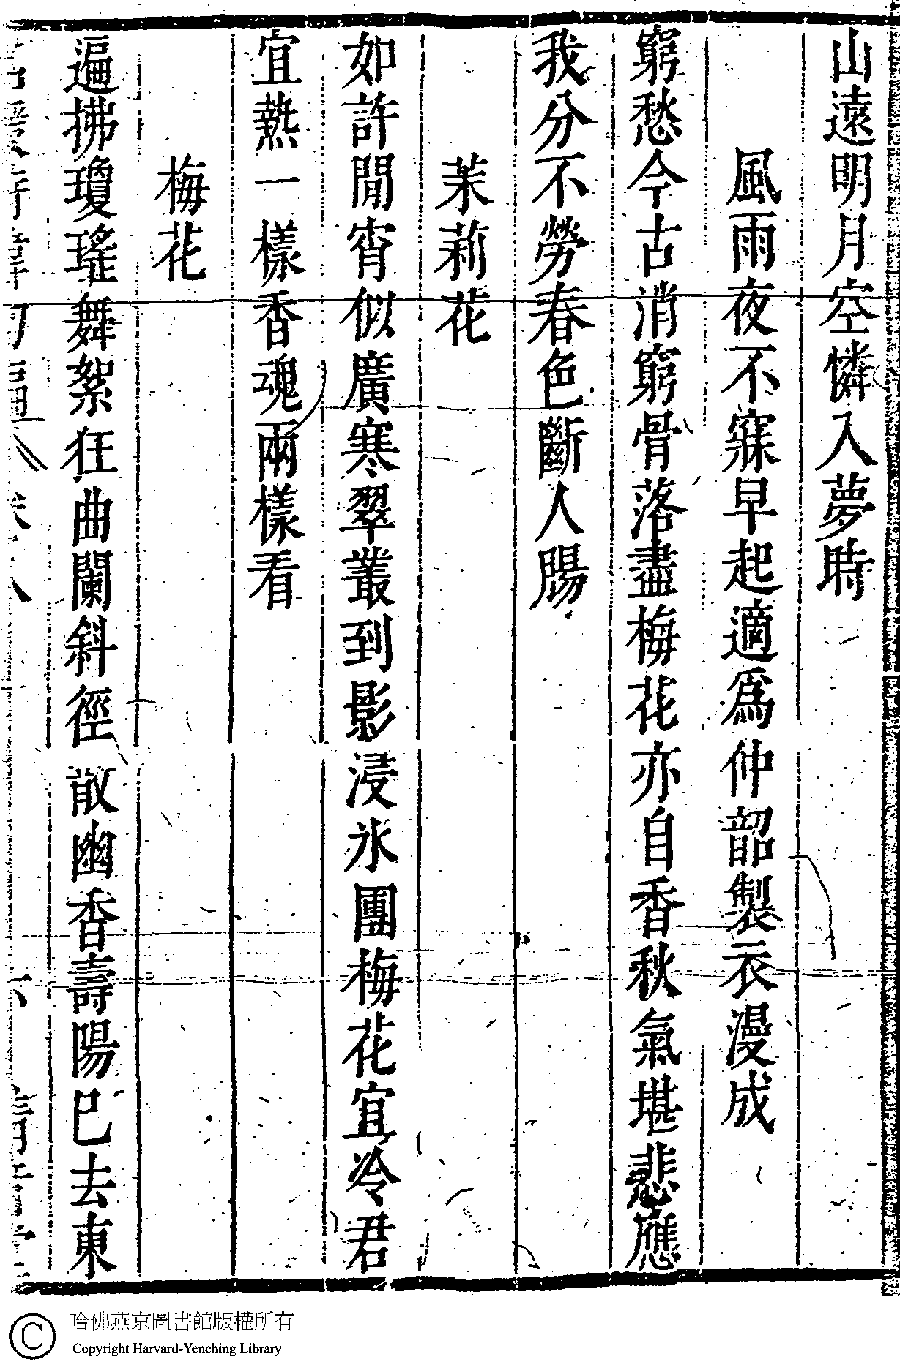 山遠明月空憐入夢時
風雨夜不寐早起適爲仲韶製衣漫成
窮愁今古消窮骨落盡梅花亦自香秋氣堪悲應
我分不勞春色斷人腸
茉莉花
如許閒宵似廣寒翠叢到影浸氷團梅花宜冷君
宜熱一樣香魂兩樣看
梅花
遍拂瓊瑤舞絮狂曲闌斜徑散幽香壽陽巳去東
哈佛燕京圖書館版權所有
Copyright Harvard-Yenching Library